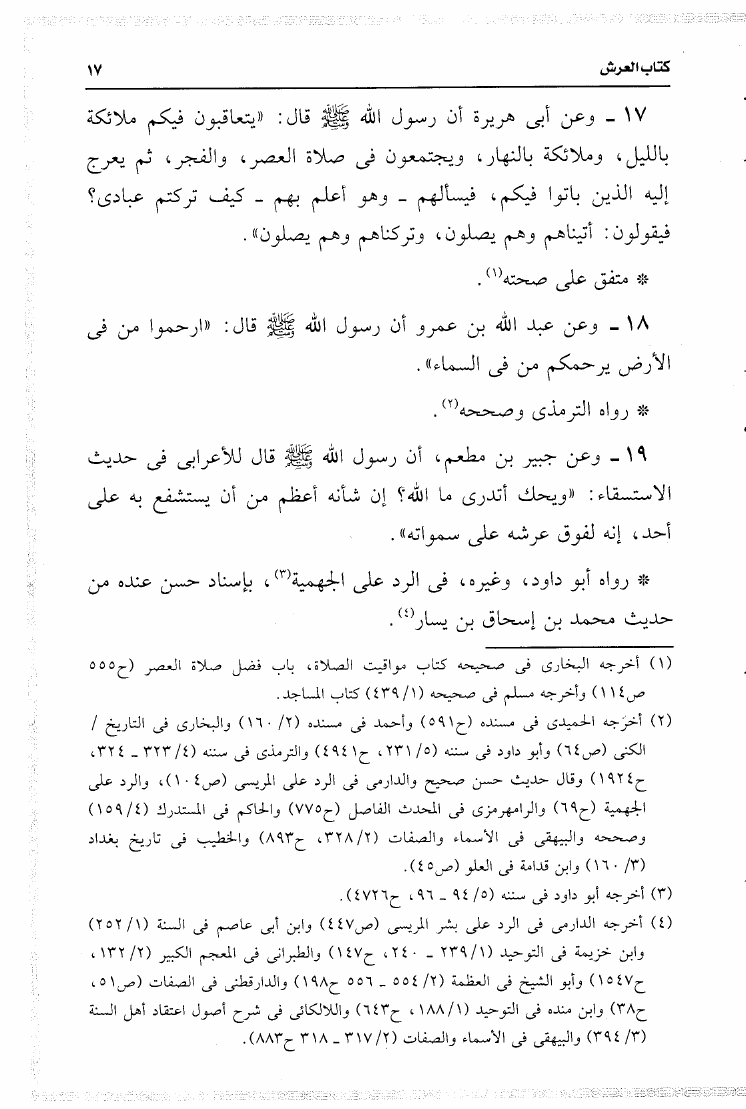 كتاب العرش ١٧
١٧ ـ وعن أبى هريرة أن رسول الله ﷺ قال: «يتعاقبون فيكم ملائكة
بالليل، وملائكة بالنهار، ويجتمعون فى صلاة العصر، والفجر، ثم يعرج
إليه الذين باتوا فيكم، فيسألهم ـ وهو أعلم بهم ـ كيف تركتم عبادى؟
فيقولون: أتيناهم وهم يصلون، وتركناهم وهم يصلون».
* متفق على صحته(١).
١٨ ـ وعن عبد الله بن عمرو أن رسول الله ﷺ قال: «ارحموا من فى
الأرض يرحمكم من فى السماء».
* رواه الترمذى وصححه(٢).
١٩ ـ وعن جبير بن مطعم، أن رسول الله ﷺ قال للأعرابى فى حديث
الاستسقاء: «ويحك أتدرى ما الله؟ إن شأنه أعظم من أن يستشفع به على
أحد، إنه لفوق عرشه على سمواته».
* رواه أبو داود، وغيره، فى الرد على الجهمية(٣)، بإسناد حسن عنده من
حديث محمد بن إسحاق بن يسار(٤).
(١) أخرجه البخارى فى صحيحه كتاب مواقيت الصلاة، باب فضل صلاة العصر (ح٥٥٥
ص١١٤) وأخرجه مسلم فى صحيحه (٤٣٩/١) كتاب المساجد.
(٢) أخرجه الحميدى فى مسنده (ح٥٩١) وأحمد فى مسنده (١٦٠/٢) والبخارى فى التاريخ /
الكنى (ص٦٤) وأبو داود فى سننه (٢٣١/٥، ح٤٩٤١) والترمذى فى سننه (٣٢٣/٤ ـ ٣٢٤،
ح١٩٢٤) وقال حديث حسن صحيح والدارمى فى الرد على المريسى (ص١٠٤)، والرد على
الجهمية (ح٦٩) والرامهرمزى فى المحدث الفاصل (ح٧٧٥) والحاكم فى المستدرك (١٥٩/٤)
وصححه والبيهقى فى الأسماء والصفات (٣٢٨/٢، ح٨٩٣) والخطيب فى تاريخ بغداد
(١٦٠/٣) وابن قدامة فى العلو (ص٤٥).
(٣) أخرجه أبو داود فى سننه (٩٤/٥ ـ ٩٦، ح٤٧٢٦).
(٤) أخرجه الدارمى فى الرد على بشر المريسى (ص٤٤٧) وابن أبى عاصم فى السنة (٢٥٢/١)
وابن خزيمة فى التوحيد (٢٣٩/١ ـ ٢٤٠، ح١٤٧) والطبرانى فى المعجم الكبير (١٣٢/٢،
ح١٥٤٧) وأبو الشيخ فى العظمة (٥٥٤/٢ ـ ٥٥٦ ح١٩٨) والدارقطنى فى الصفات (ص٥١،
ح٣٨) وابن منده فى التوحيد (١٨٨/١، ح٦٤٣) واللالكائى فى شرح أصول اعتقاد أهل السنة
(٣٩٤/٣) والبيهقى فى الأسماء والصفات (٣١٧/٢ ـ ٣١٨ ح٨٨٣).